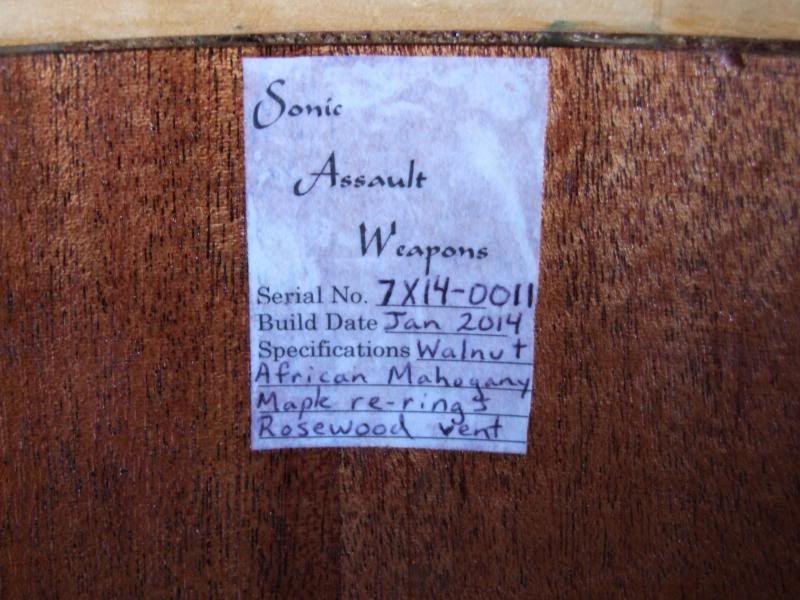 Sonic
Assault
Weapons
Serial No. 7X14-0011
Build Date Jan 2014
Specifications Walnut
African Mahogany
Maple re-rings
Rosewood vent